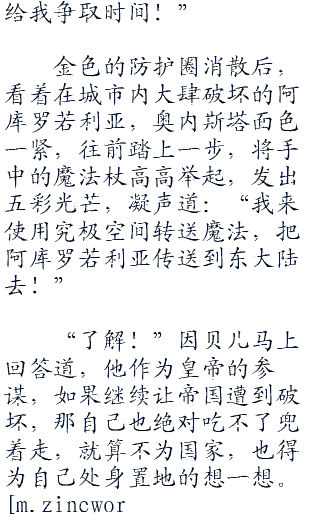 给我争取时间！”
金色的防护圈消散后，
看着在城市内大肆破坏的阿
库罗若利亚，奥内斯塔面色
一紧，往前踏上一步，将手
中的魔法杖高高举起，发出
五彩光芒，凝声道：“我来
使用究极空间转送魔法，把
阿库罗若利亚传送到东大陆
去！”
“了解！”因贝儿马上
回答道，他作为皇帝的参
谋，如果继续让帝国遭到破
坏，那自己也绝对吃不了兜
着走，就算不为国家，也得
为自己处身置地的想一想。
[m.zincwor